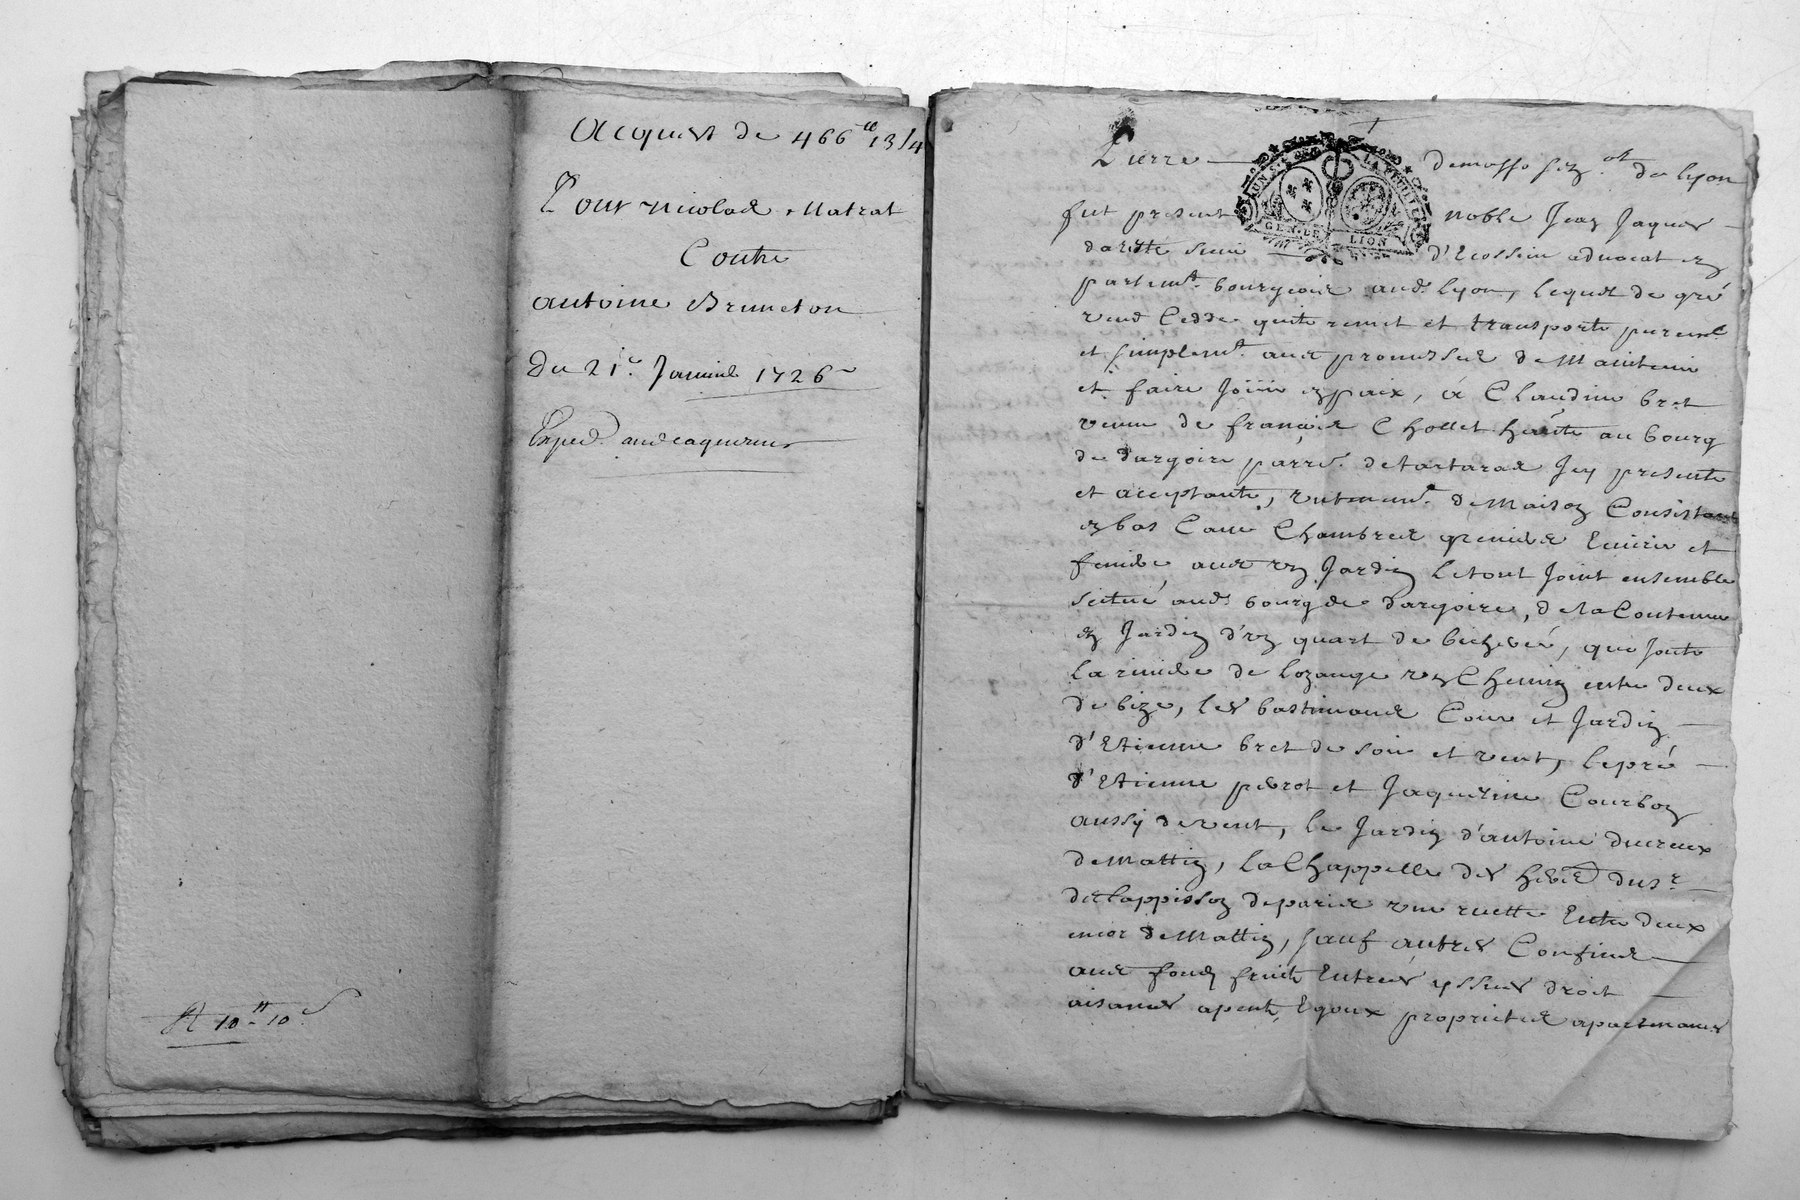 Acquest de 466ᵗᵗ 13/4
Pour nicolas Matrat
Contre
antoine Bruneton
Du 21ᵉ Janvier 1726
Exped. aud acquereur
10ᵗᵗ 10ˢ
Pierre de lyon
fut present noble Jean Jaques
dareste d'Ecossieu advocat en
parlemᵗ. bourgeois aud. lyon, lequel de gré
vend Cedde quite remet et transporte puremᵗ
et simplemᵗ. avec promesses de Maintenir
et faire Jouir en paix, a Claudine bret
veuve de françois Chollet au bourg
de dargoire parrᵉ. de tartaras Icy presente
et acceptante, un tenemᵗ. de Maison Consistant
en bas Cave Chambres grenier Ecurie et
feniere, avec un Jardin le tout Joint ensemble
scitué aud. bourg de dargoire, de la Contenue
en Jardin d'un quart de bicherée, que Jouxte
la riviere de lozange un Chemin entre deux
de bize, les bastimans Cour et Jardin
d'Etienne bret de soir et vent, le pré
d'Etienne perrot et Jaquesme Courbon
aussy de vent, le Jardin d'antoine ducreux
de Mattin, la Chappelle des du sʳ
une ruette Entre deux
encor de Mattin, sauf autres Confins
avec fond, fruits Entrées yssues droit
aisances Egoux proprietes apartenances
GEN. DE LION